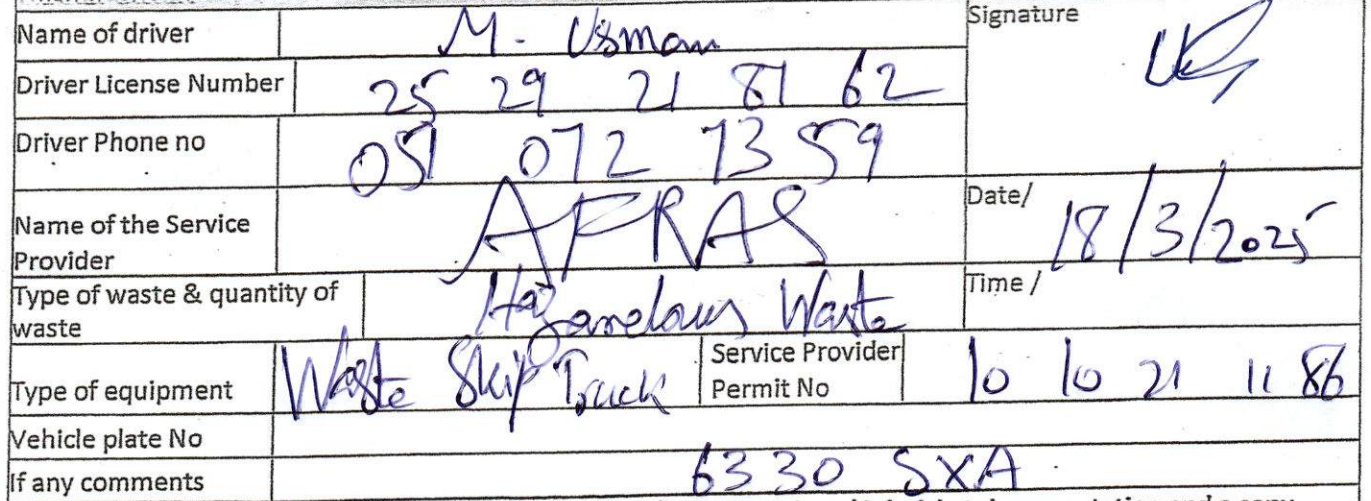 Name of driver M. Usman Signature
Driver License Number 25 29 21 81 62
Driver Phone no 051 072 73 59
Name of the Service Provider AFRAS Date/ 18/3/2025
Type of waste & quantity of waste Hazardous Waste Time /
Type of equipment Waste Skip Truck Service Provider Permit No 10 10 21 11 86
Vehicle plate No
If any comments 6330 SXA